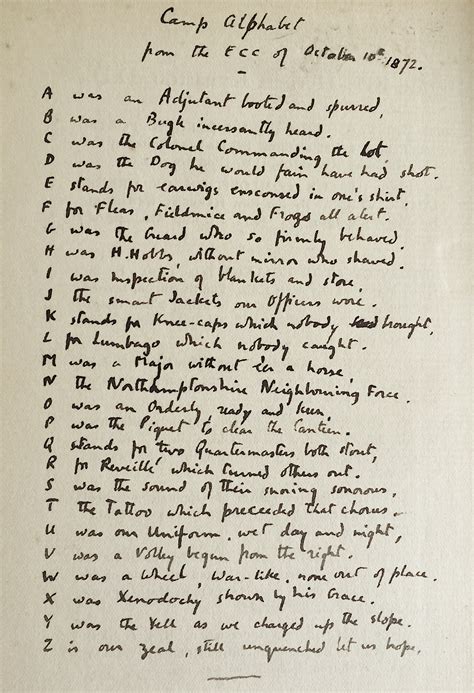 Camp Alphabet
from the ECC of October 10th 1872.
A was an Adjutant booted and spurred,
B was a Bugle incessantly heard.
C was the Colonel Commanding the lot,
D was the Dog he would fain have had shot.
E stands for earwigs ensconsed in one's shirt,
F for Fleas, Fieldmice and Frogs all alert.
G was the Guard who so firmly behaved,
H was H. Hobbs, without mirror who shaved.
I was inspection of blankets and store,
J the smart Jackets our Officers wore.
K stands for Knee-caps which nobody brought,
L for Lumbago which nobody caught.
M was a Major without e'er a horse,
N the Northamptonshire Neighbouring Force.
O was an Orderly, ready and keen,
P was the Piquet to clear the Canteen.
Q stands for two Quartermasters both stout,
R for Reveillé which turned others out.
S was the sound of their snoring sonorous,
T the Tattoo which preceeded that chorus.
U was our Uniform, wet day and night,
V was a Volley begun from the right.
W was a Wheel, War-like, none out of place.
X was Xenodochy shown by his Grace.
Y was the Yell as we charged up the slope.
Z is our zeal, still unquenched let us hope.